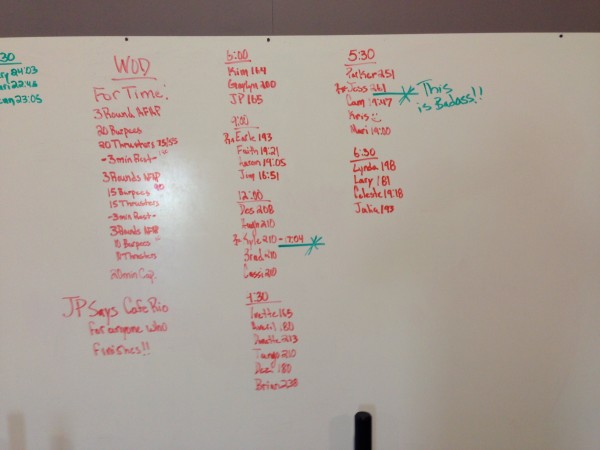 :30
24:03
22:43
23:05
WOD
For Time:
3 Rounds AFAP
20 Burpees
20 Thrusters 75/55
-3 min Rest-
3 Rounds AFAP
15 Burpees
15 Thrusters
-3 min Rest-
3 Rounds AFAP
10 Burpees
Thrusters
20 min Cap.
JP Says Cafe Rio
for anyone who
finishes!!
6:00
Kim 164
200
JP 165
9:00
Rx Earle 193
Faith 19:21
19:05
Jim 16:51
12:00
Des 208
210
Rx Kyle 210 - 17:04
Brad 210
Cassi 210
4:30
165
180
213
Tango 210
180
Brian 238
5:30
Parker 251
Rx Jess 261
Cam 19:47
Kris
Mari 19:00
This
is Badass!!
6:30
Lynda 198
Lacy 181
Celeste 19:18
Julia 193